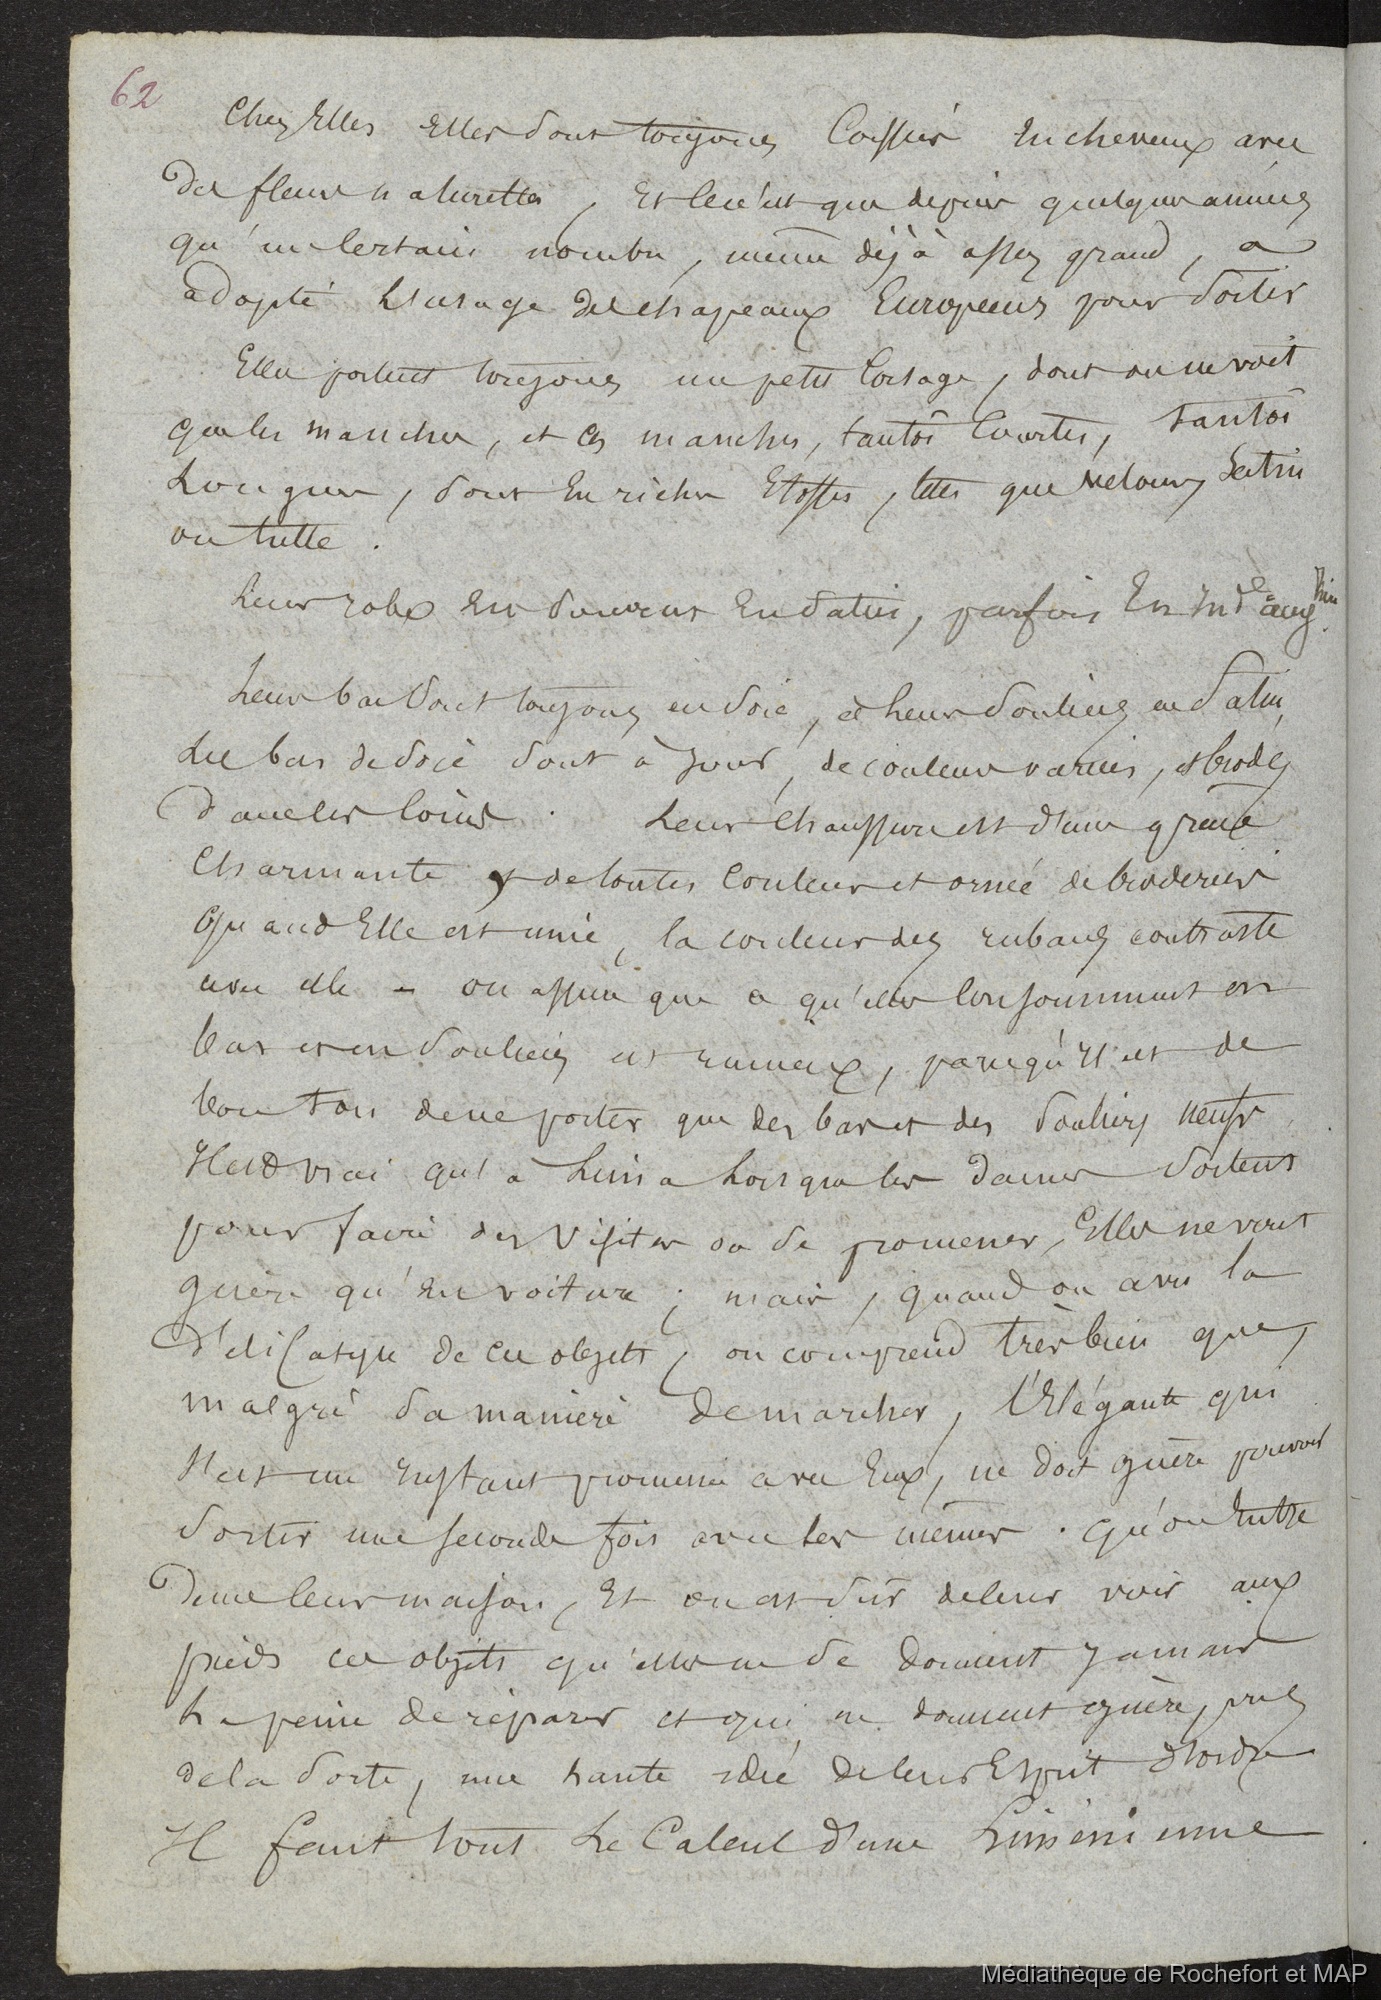 62
Chez Elles Elles sont toujours Coiffées En cheveux avec
des fleurs naturelles, Et ce n'est que depuis quelques années
qu'un Certain nombre, même déjà assez grand, a
adopté L'usage des chapeaux Européens pour sortir
Elles portent toujours un petit Corsage, dont on ne voit
que les manches, et ces manches, tantôt Courtes, tantôt
Longues, sont En riches Etoffes, telles que velours, Satin
ou tulle.
Leur robe Est souvent En Satin, parfois En
Leurs bas sont toujours en soie, et Leurs souliers en Satin,
Les bas de soie sont à jour, de couleurs variées, et brodés
dans les coins. Leur Chaussure est d'une grace
Charmante et de toutes Couleurs et ornée de broderies
Quand Elle est unie, la couleur des rubans contraste
avec elle - on assure que ce qu'elles Consomment en
bas et en souliers est ruineux, parcequ'Il est de
bon ton de ne porter que des bas et des souliers neufs.
Il est vrai qu'à Lima Lorsque les dames sortent
pour faire des Visites ou se promener, Elles ne vont
guère qu'En voiture ; mais, quand on a vu la
délicatesse de ces objets, on comprend très bien que,
malgré sa manière de marcher, l'Elégante qui
s'est un Instant promenée avec Eux, ne doit guère pouvoir
sortir une seconde fois avec les mêmes. Qu'on Entre
dans leur maison, Et on est sûr de leur voir aux
pieds ces objets qu'elles ne se donnent Jamais
La peine de réparer et qui ne donnent guère, vus
de la sorte, une haute Idée de leur Esprit d'ordre
Il faut tout Le Calcul d'une Liménienne
Médiathèque de Rochefort et MAP